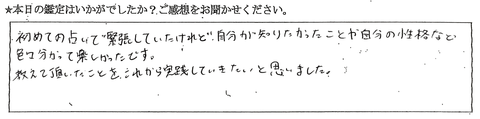 ★本日の鑑定はいかがでしたか？ご感想をお聞かせください。
初めての占いで緊張していたけれど、自分が知りたかったことや自分の性格など
色々分かって楽しかったです。
教えて頂いたことを、これから実践していきたいと思いました。